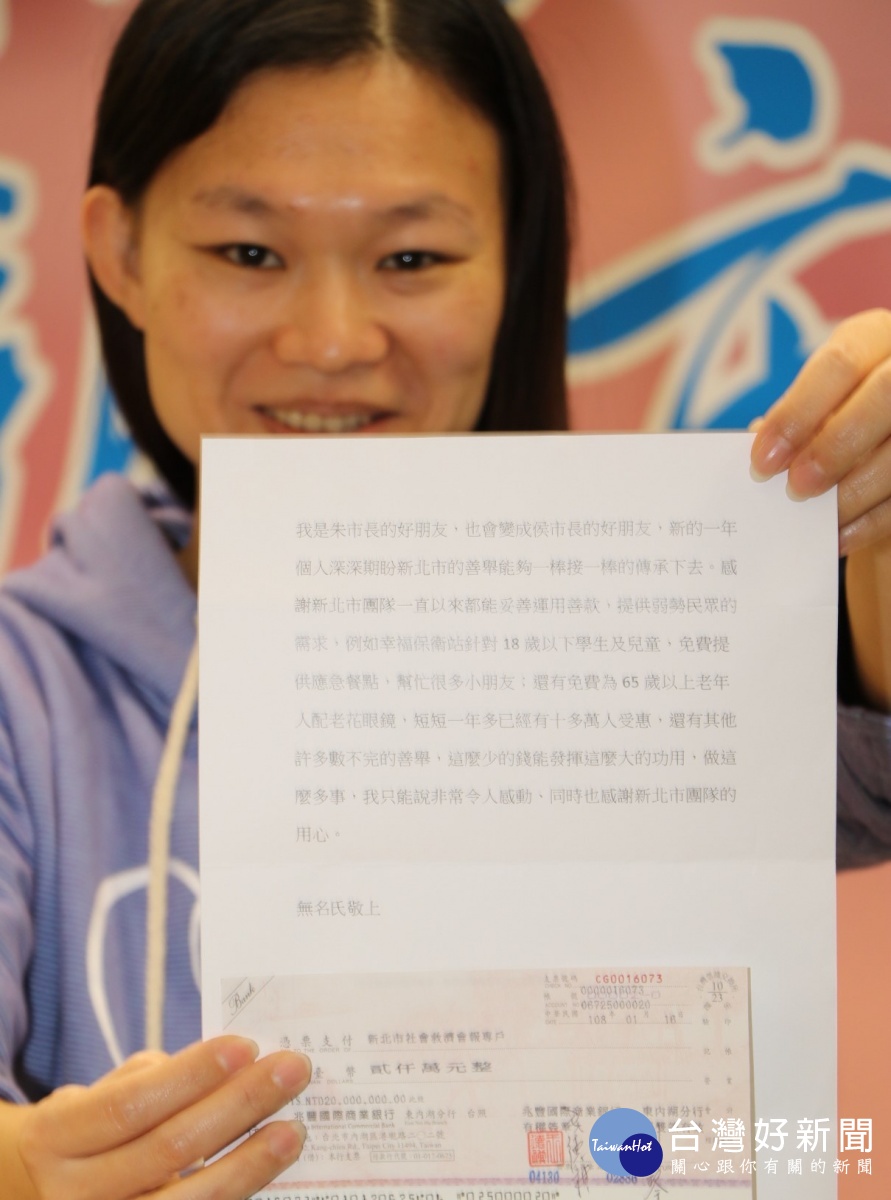 我是朱市長的好朋友，也會變成侯市長的好朋友，新的一年
個人深深期盼新北市的善舉能夠一棒接一棒的傳承下去。感
謝新北市團隊一直以來都能妥善運用善款，提供弱勢民眾的
需求，例如幸福保衛站針對 18 歲以下學生及兒童，免費提
供應急餐點，幫忙很多小朋友；還有免費為 65 歲以上老年
人配老花眼鏡，短短一年多已經有十多萬人受惠，還有其他
許多數不完的善舉，這麼少的錢能發揮這麼大的功用，做這
麼多事，我只能說非常令人感動、同時也感謝新北市團隊的
用心。
無名氏敬上
Bank
CG0016073
0000016073
06725000020
108年 01月 16日
憑票支付 新北市社會救濟會報專戶
幣 貳仟萬元整
NTD20,000,000.00
兆豐國際商業銀行 東內湖分行 台照
兆豐國際商業銀 東內湖分行
04130
TaiwanHot
台灣好新聞
關心跟你有關的新聞